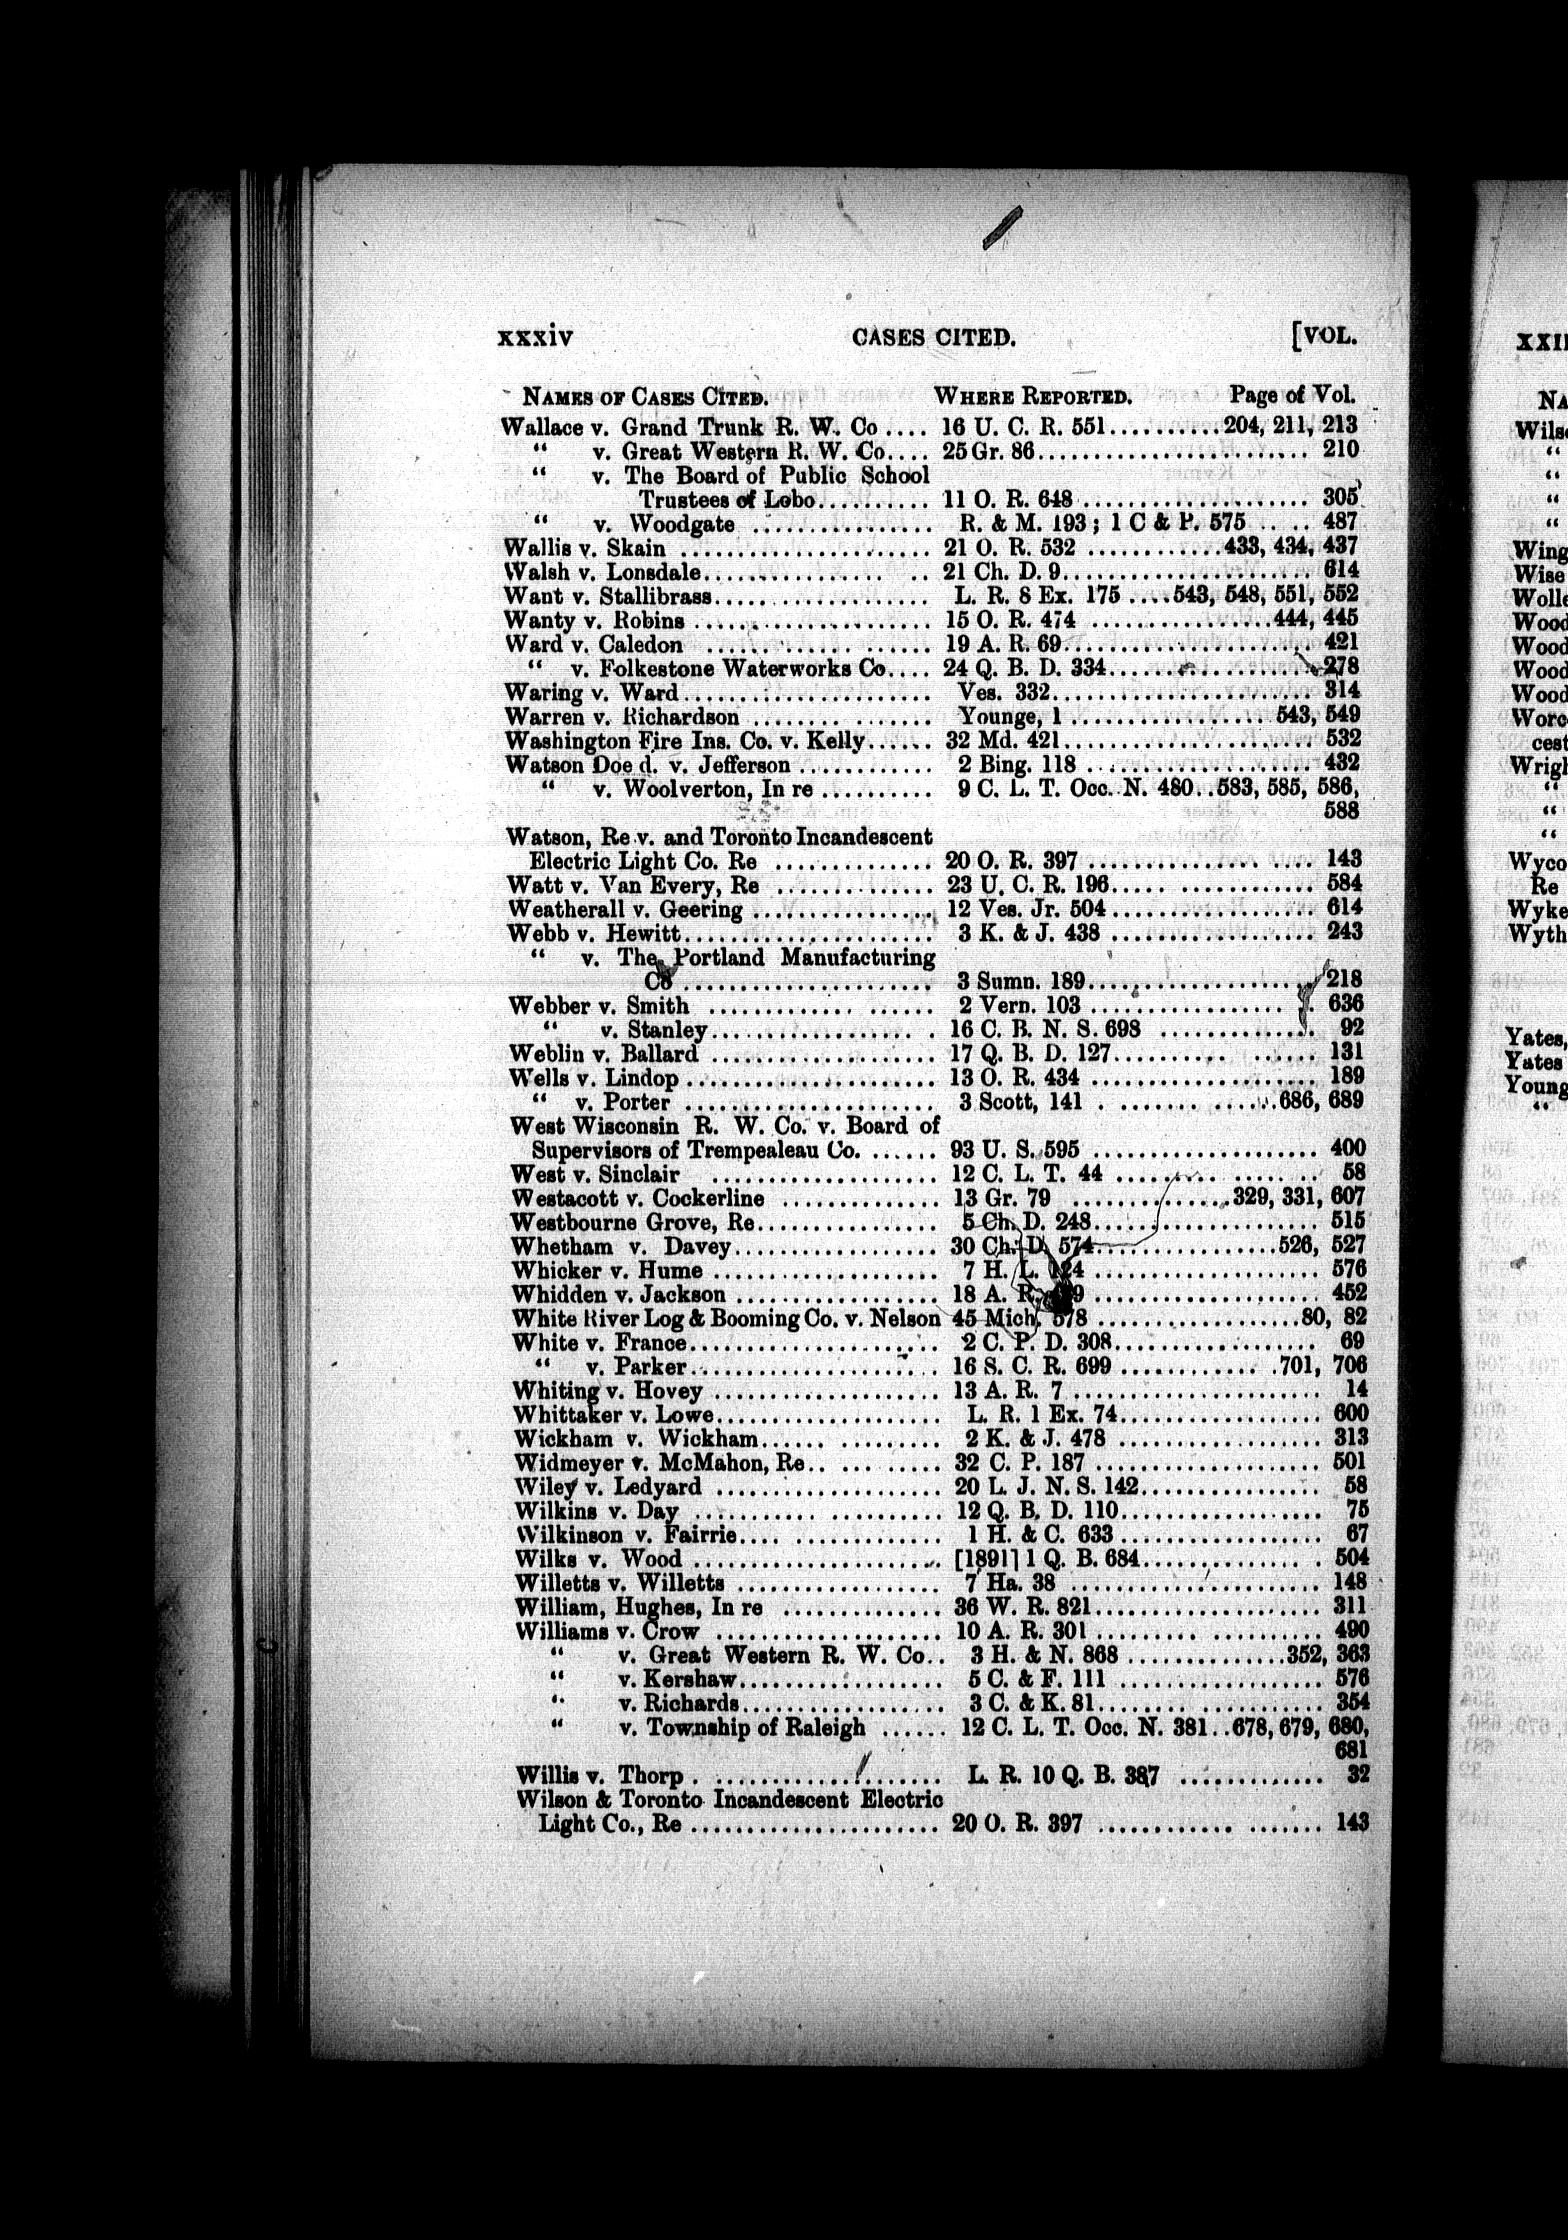 xxxiv CASES CITED. [VOL.
NAMES OF CASES CITED. WHERE REPORTED. Page of Vol.
Wallace v. Grand Trunk R. W. Co .... 16 U. C. R. 551..........204, 211, 213
“ v. Great Western R. W. Co.... 25 Gr. 86........................ 210
“ v. The Board of Public School
Trustees of Lobo.......... 11 O. R. 648 .................... 305
“ v. Woodgate ................ R. & M. 193; 1 C & P. 575 .. .. 487
Wallis v. Skain ...................... 21 O. R. 532 ............433, 434, 437
Walsh v. Lonsdale................ .. 21 Ch. D. 9...................... 614
Want v. Stallibrass................... L. R. 8 Ex. 175 ....543, 548, 551, 552
Wanty v. Robins ..................... 15 O. R. 474 ................444, 445
Ward v. Caledon .................... 19 A. R. 69...................... 421
“ v. Folkestone Waterworks Co.... 24 Q. B. D. 334.................. 278
Waring v. Ward...................... Ves. 332....................... 314
Warren v. Richardson ........ ....... Younge, 1 ................. 543, 549
Washington Fire Ins. Co. v. Kelly...... 32 Md. 421...................... 532
Watson Doe d. v. Jefferson ............ 2 Bing. 118 .................... 432
“ v. Woolverton, In re .......... 9 C. L. T. Occ. N. 480..583, 585, 586,
588
Watson, Re v. and Toronto Incandescent
Electric Light Co. Re .............. 20 O. R. 397 .................... 143
Watt v. Van Every, Re .............. 23 U. C. R. 196..... ............ 584
Weatherall v. Geering ................ 12 Ves. Jr. 504.................. 614
Webb v. Hewitt...................... 3 K. & J. 438 .................. 243
“ v. The Portland Manufacturing
Co ...................... 3 Sumn. 189.................... 218
Webber v. Smith ............. ...... 2 Vern. 103 .................... 636
“ v. Stanley.................... 16 C. B. N. S. 698 .............. 92
Weblin v. Ballard .................... 17 Q. B. D. 127.......... ...... 131
Wells v. Lindop...................... 13 O. R. 434 .................... 189
“ v. Porter ...................... 3 Scott, 141 . ........ .......686, 689
West Wisconsin R. W. Co. v. Board of
Supervisors of Trempealeau Co. ...... 93 U. S. 595 .................... 400
West v. Sinclair .................... 12 C. L. T. 44 .................. 58
Westacott v. Cockerline .............. 13 Gr. 79 ..............329, 331, 607
Westbourne Grove, Re................ 5 Ch. D. 248.................... 515
Whetham v. Davey.................. 30 Ch. D. 574................526, 527
Whicker v. Hume .................... 7 H. L. 124 .................... 576
Whidden v. Jackson .................. 18 A. R. .................... 452
White River Log & Booming Co. v. Nelson 45 Mich. 578 ..................80, 82
White v. France...................... 2 C. P. D. 308.................. 69
“ v. Parker...................... 16 S. C. R. 699 ..............701, 706
Whiting v. Hovey .................... 13 A. R. 7 ...................... 14
Whittaker v. Lowe.................... L. R. 1 Ex. 74.................. 600
Wickham v. Wickham...... ......... 2 K. & J. 478 .................. 313
Widmeyer v. McMahon, Re.. ... ..... 32 C. P. 187 .................... 501
Wiley v. Ledyard .................... 20 L. J. N. S. 142................ 58
Wilkins v. Day ...................... 12 Q. B. D. 110.................. 75
Wilkinson v. Fairrie.... ............. 1 H. & C. 633 .................. 67
Wilks v. Wood ...................... [1891] 1 Q. B. 684................ 504
Willetts v. Willetts .................. 7 Ha. 38 ...................... 148
William, Hughes, In re .............. 36 W. R. 821.................... 311
Williams v. Crow .................... 10 A. R. 301 ......... .......... 490
“ v. Great Western R. W. Co.. 3 H. & N. 868 ..............352, 363
“ v. Kershaw.................. 5 C. & F. 111 .................. 576
“ v. Richards.................. 3 C. & K. 81.................... 354
“ v. Township of Raleigh ...... 12 C. L. T. Occ. N. 381..678, 679, 680,
681
Willis v. Thorp . .................... L. R. 10 Q. B. 387 ............. 32
Wilson & Toronto Incandescent Electric
Light Co., Re ...................... 20 O. R. 397 ............ ....... 143
XXII
NA
Wils
“
“
“
“
Wing
Wise
Woll
Wood
Wood
Wood
Wood
Worc
cest
Wrigh
“
“
“
Wyco
Re
Wyke
Wyth
Yates,
Yates
Young
“